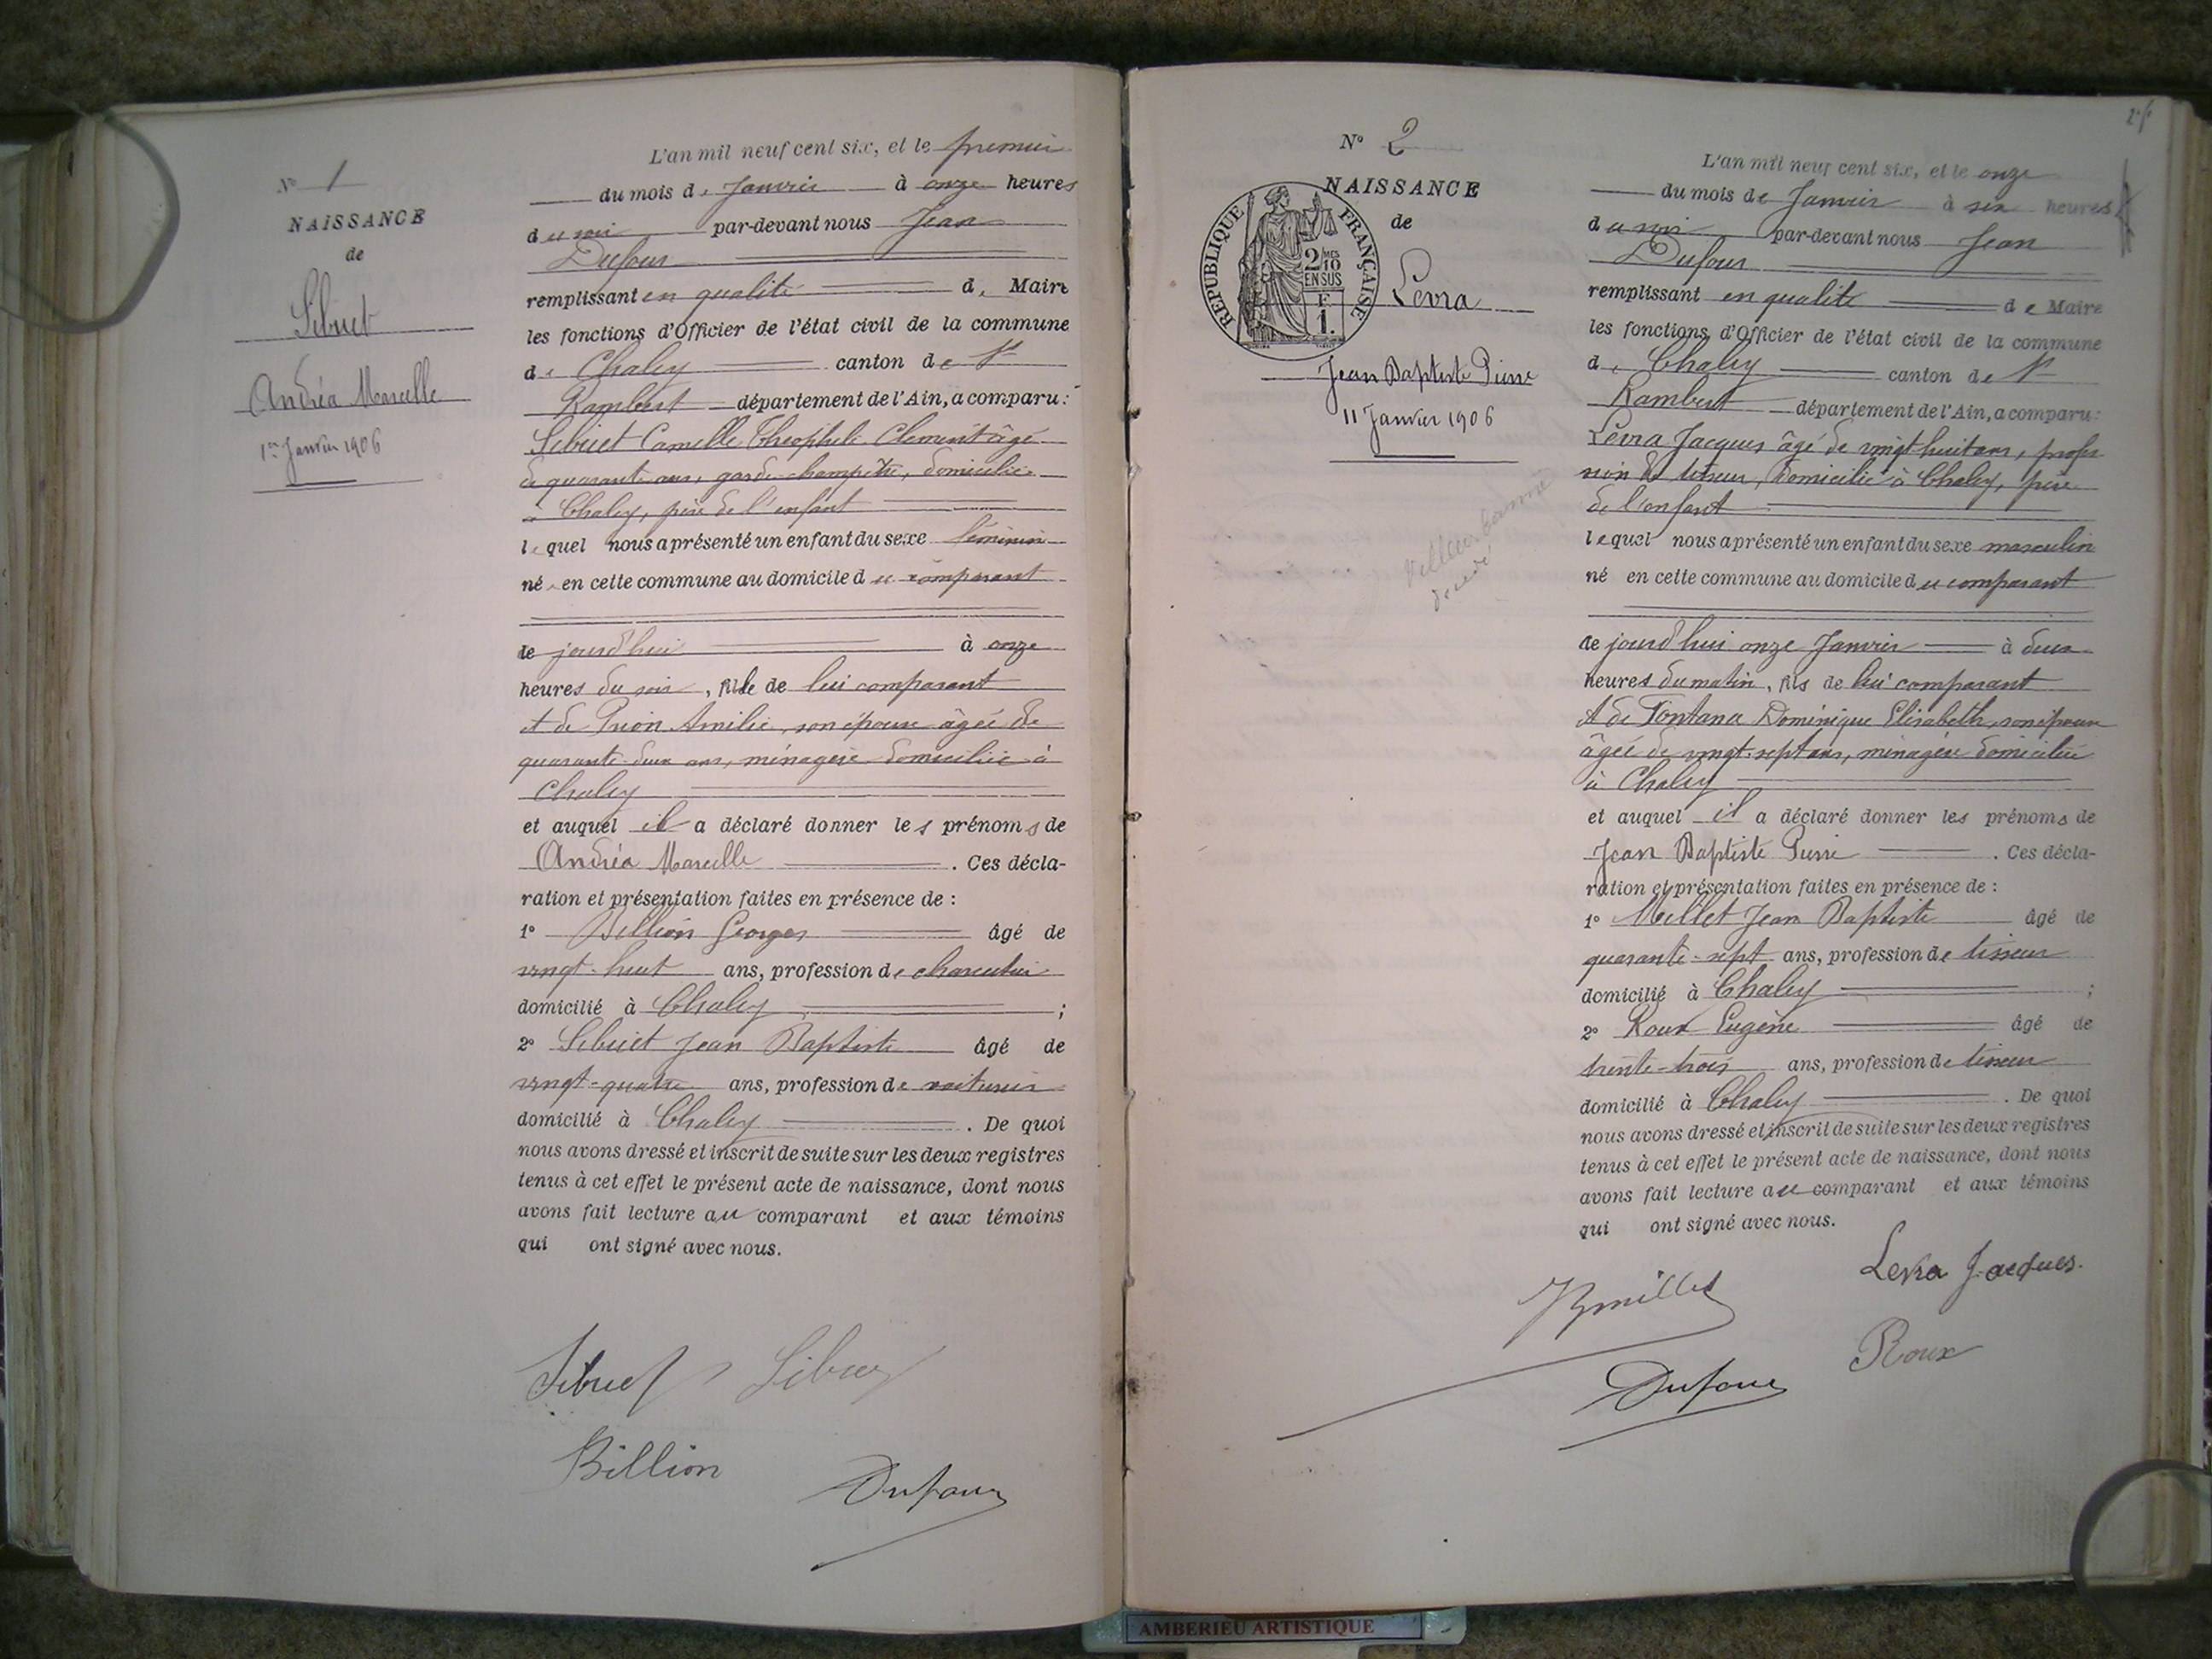 N° 1
NAISSANCE
de
Sibuet
Andréa Marcelle
1er Janvier 1906
L'an mil neuf cent six, et le premier
du mois de Janvier à onze heures
du soir par-devant nous Jean
Dufour
remplissant en qualité de Maire
les fonctions d'Officier de l'état civil de la commune
de Chaley canton de St
Rambert département de l'Ain, a comparu :
Sibuet Camille Théophile Clément âgé
de quarante ans, garde-champêtre, domicilié
à Chaley, père de l'enfant
lequel nous a présenté un enfant du sexe féminin
né en cette commune au domicile du comparant
ce jourd'hui à onze
heures du soir, fille de lui comparant
et de Prion Amélie, son épouse âgée de
quarante-deux ans, ménagère domiciliée à
Chaley
et auquel il a déclaré donner les prénoms de
Andréa Marcelle . Ces décla-
ration et présentation faites en présence de :
1° Billion Georges âgé de
vingt-huit ans, profession de charcutier
domicilié à Chaley ;
2° Sibuet Jean Baptiste âgé de
vingt-quatre ans, profession de voiturier
domicilié à Chaley . De quoi
nous avons dressé et inscrit de suite sur les deux registres
tenus à cet effet le présent acte de naissance, dont nous
avons fait lecture au comparant et aux témoins
qui ont signé avec nous.
Sibuet Sibuet
Billion
Dufour
N° 2
NAISSANCE
de
REPUBLIQUE FRANÇAISE
2 MES
10
EN SUS
F
1.
Levra
Jean Baptiste Pierre
11 Janvier 1906
Villeurbanne
décédé
L'an mil neuf cent six, et le onze
du mois de Janvier à six heures
du soir par-devant nous Jean
Dufour
remplissant en qualité de Maire
les fonctions d'Officier de l'état civil de la commune
de Chaley canton de St
Rambert département de l'Ain, a comparu :
Levra Jacques âgé de vingt-huit ans, profes
sion de tisseur, Domicilié à Chaley, père
de l'enfant
lequel nous a présenté un enfant du sexe masculin
né en cette commune au domicile du comparant
ce jourd'hui onze Janvier à deux
heures du matin, fils de lui comparant
et de Fontana Dominique Elisabeth, son épouse
âgée de vingt-sept ans, ménagère domiciliée
à Chaley
et auquel il a déclaré donner les prénoms de
Jean Baptiste Pierre . Ces décla-
ration et présentation faites en présence de :
1° Millet Jean Baptiste âgé de
quarante-sept ans, profession de tisseur
domicilié à Chaley ;
2° Roux Eugène âgé de
trente-trois ans, profession de tisseur
domicilié à Chaley . De quoi
nous avons dressé et inscrit de suite sur les deux registres
tenus à cet effet le présent acte de naissance, dont nous
avons fait lecture au comparant et aux témoins
qui ont signé avec nous.
Levra Jacques.
Millet
Roux
Dufour
AMBERIEU ARTISTIQUE